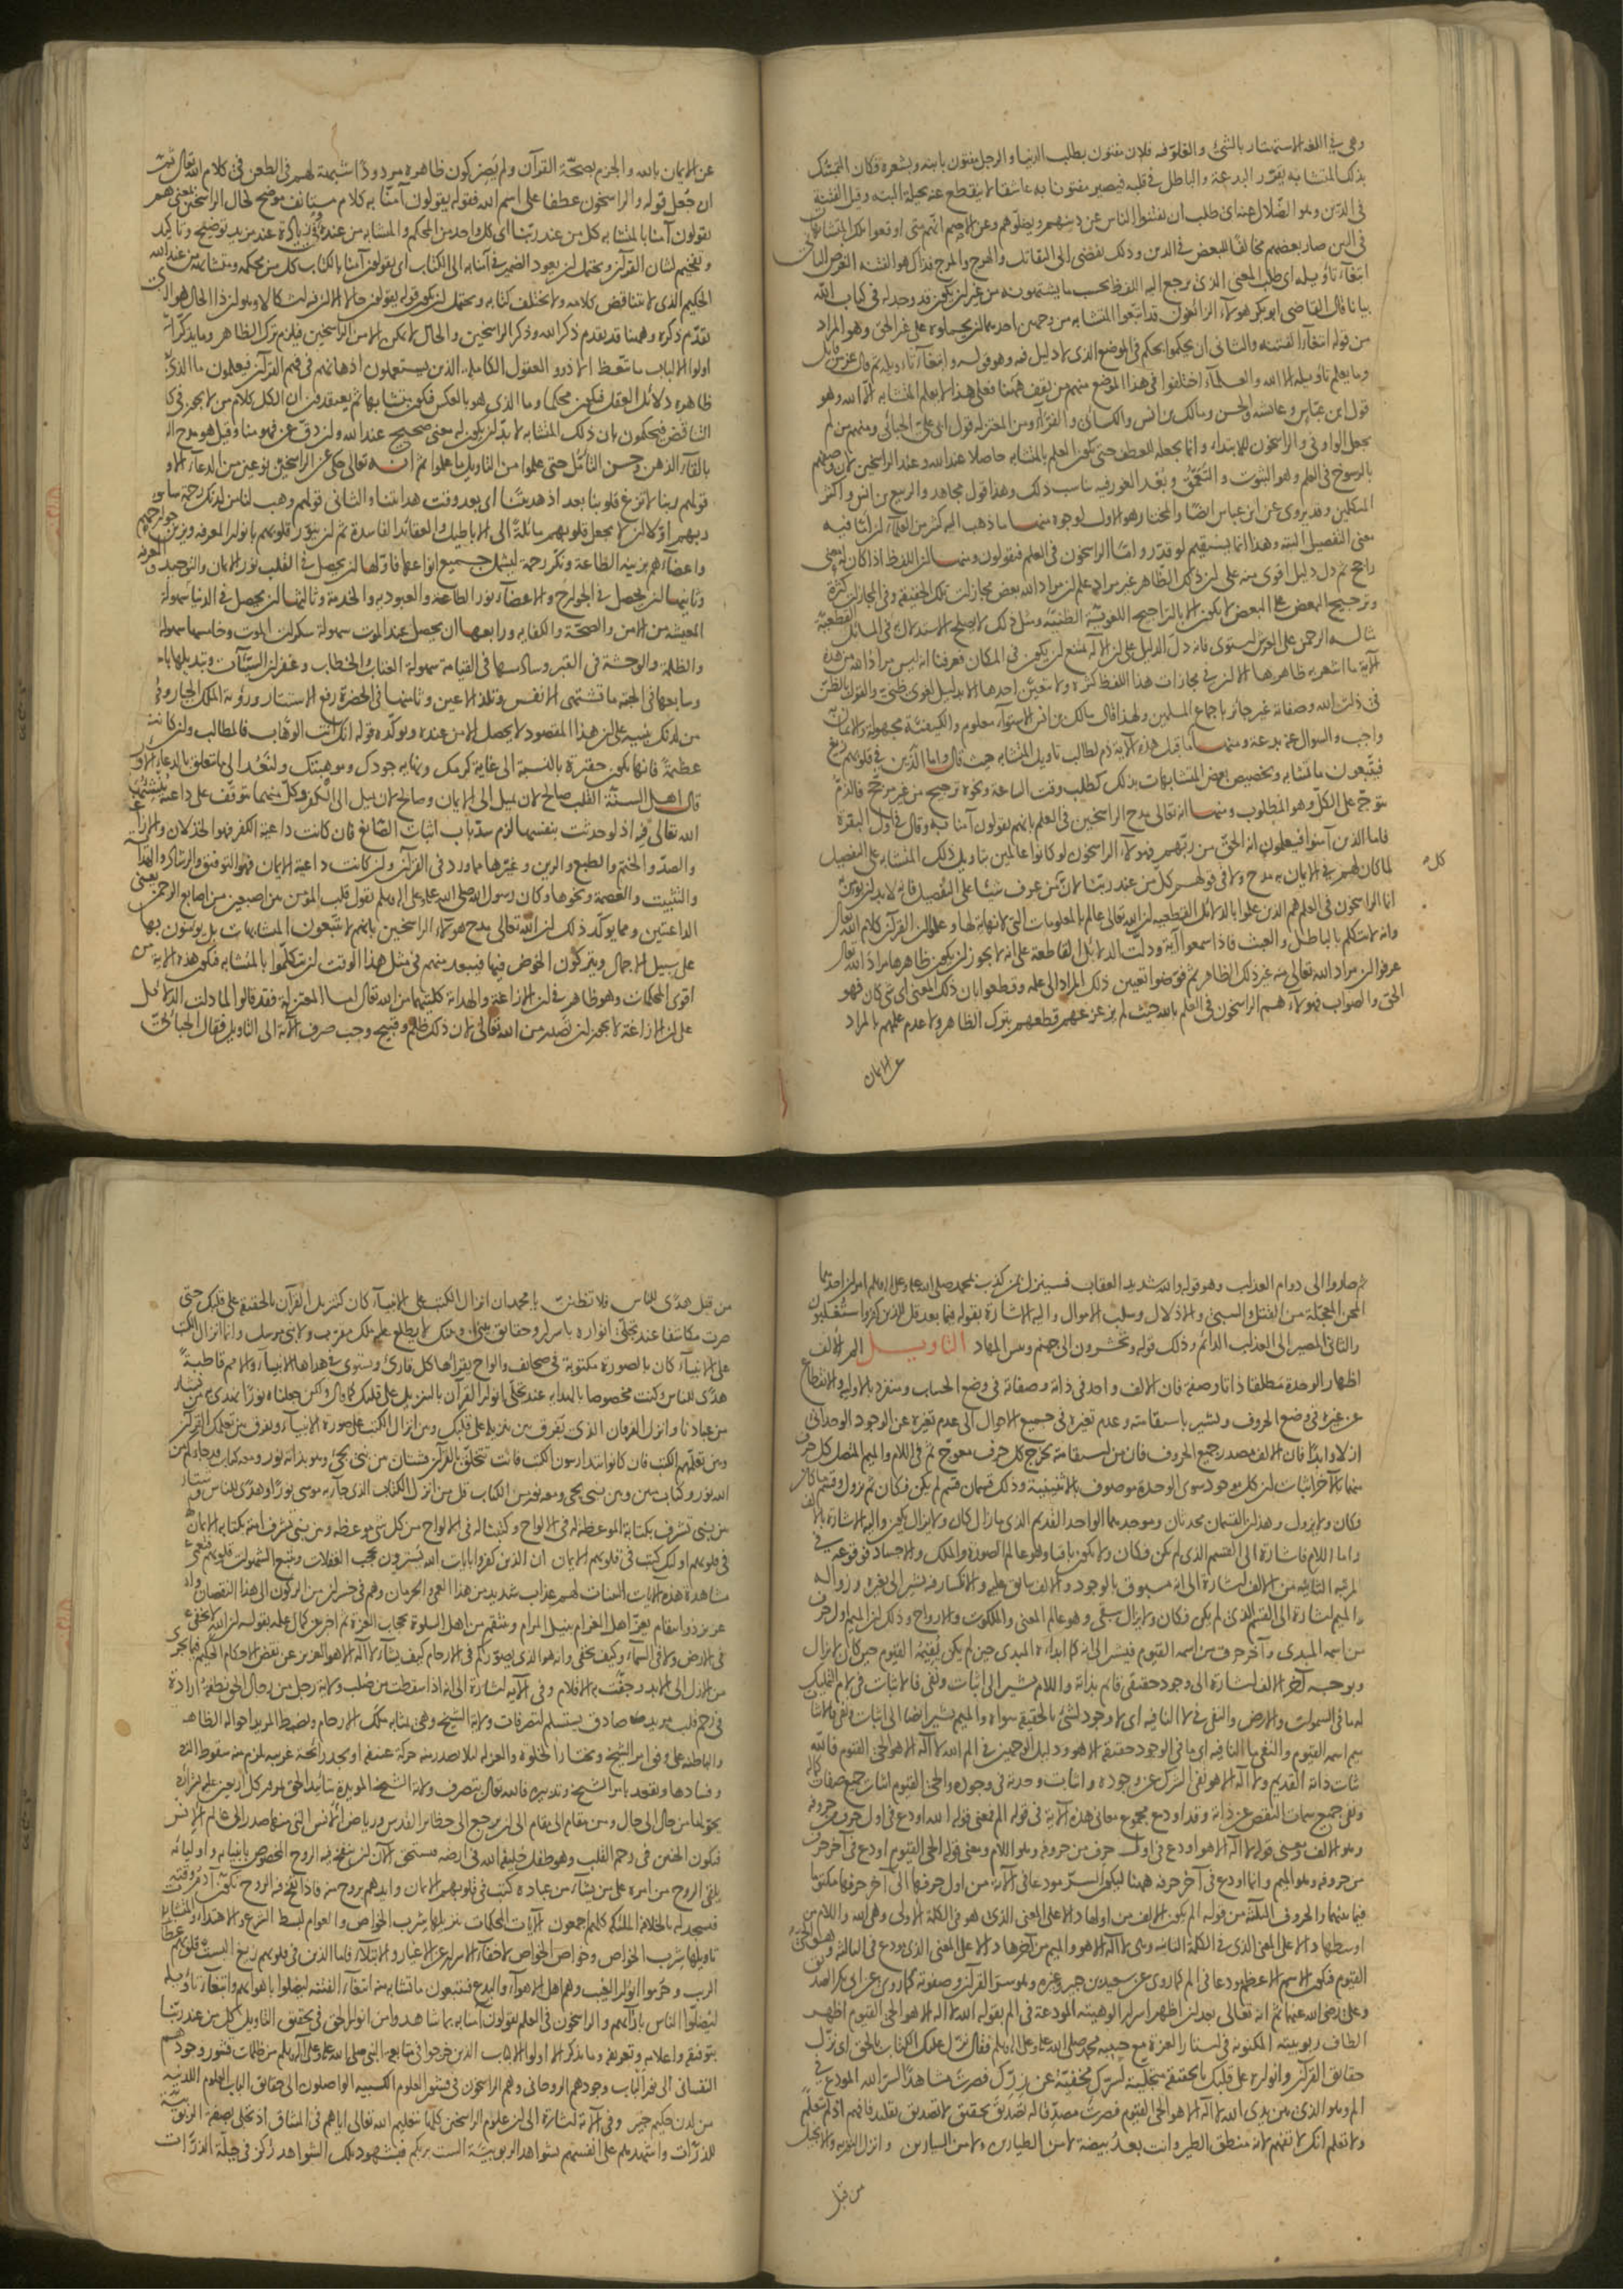 وهى فى اللغة الاستهتار بالشئ والغلو فيه فلان مفتون بطلب الدنيا والرجل مفتون بابنه وبشعره فكان التمسك
بذلك المتشابه يقرر البدعة والباطل فى قلبه فيصير مفتونا به عاشقا لا ينقطع عنه بحيلة البتة وقيل الفتنة
فى الدين هو الضلال عنه اى طلب ان يفتنوا الناس عن دينهم ويضلوهم وعن الاصم انهم متى اوقعوا تلك المتشابهات
فى الدين صار بعضهم مخالفا للبعض فى الدين وذلك يفضى الى التقاتل والهرج والمرج فذاك هو الفتنة الغرض الثانى
ابتغاء تأويله اى طلب المعنى الذى يرجع اليه اللفظ بحسب ما يشتهونه من غير ان يكون قد وجد له فى كتاب الله
بيانا قال القاضى ابو بكر هؤلاء الزائغون قد ابتغوا المتشابه من وجهين احدهما ان يحملوه على غير الحق وهو المراد
من قوله ابتغاء الفتنة والثانى ان يحكموا بحكم فى الموضع الذى لا دليل فيه وهو قوله وابتغاء تأويله ثم قال عز من قائل
وما يعلم تأويله الا الله والعلماء اختلفوا فى هذا الموضع منهم من يقف ههنا فعلى هذا لا يعلم المتشابه الا الله وهو
قول ابن عباس وعائشة والحسن ومالك بن انس والكسائى والفراء ومن المعتزلة قول ابى على الجبائى ومنهم من لم
يجعل الواو فى والراسخون للابتداء وانما يجعله للعطف حتى يكون العلم بالمتشابه حاصلا عند الله وعند الراسخين لان وصفهم
بالرسوخ فى العلم وهو الثبوت والتعمق وبعد الغور فيه يناسب ذلك وهذا قول مجاهد والربيع بن انس واكثر
المتكلمين وقد يروى عن ابن عباس ايضا والمختار هو الاول لوجوه منها ما ذهب اليه كثير من العلماء ان اما فيه
معنى التفصيل البتة وهذا انما يستقيم لو قدر واما الراسخون فى العلم فيقولون ومنها ان اللفظ اذا كان له معنى
راجح ثم دل دليل اقوى منه على ان ذلك الظاهر غير مراد علم ان مراد الله بعض مجازات تلك الحقيقة وفى المجازات كثرة
وترجيح البعض على البعض لا يكون الا بالتراجيح اللغوية الظنية ومثل ذلك لا يصلح الاستدلال فى المسائل القطعية
مثاله الرحمن على العرش استوى فانه دل الدليل على ان الاله يمتنع ان يكون فى المكان فعرفنا انه ليس مراد الله من هذه
الآية ما اشعر به ظاهرها الا ان فى مجازات هذا اللفظ كثرة ولا يتعين احدها الا بدليل لغوى ظنى والقول بالظن
فى ذات الله وصفاته غير جائز باجماع المسلمين ولهذا قال مالك بن انس الاستواء معلوم والكيفية مجهولة والايمان به
واجب والسؤال عنه بدعة ومنها ما قبل هذه الآية ذم لطالب تأويل المتشابه حيث قال فاما الذين فى قلوبهم زيغ
فيتبعون ما تشابه وتخصيص بعض المتشابهات بذلك كطلب وقت الساعة ونحوه ترجيح من غير مرجح فالذم
يتوجه على الكل وهو المطلوب ومنها انه تعالى مدح الراسخين فى العلم بانهم يقولون آمنا به وقال فى اول البقرة
فاما الذين آمنوا فيعلمون انه الحق من ربهم فهؤلاء الراسخون لو كانوا عالمين بتأويل ذلك المتشابه على التفصيل
كل
لما كان لهم فى الايمان به مدح ولا فى قولهم كل من عند ربنا لان من عرف شيئا على التفصيل فانه لا بد ان يؤمن به
انما الراسخون فى العلم هم الذين علموا بالدلائل القطعية ان الله تعالى عالم بالمعلومات التى لا نهاية لها وعلموا ان القرآن كلام الله تعالى
وانه لا يتكلم بالباطل والعبث فاذا سمعوا آية ودلت الدلائل القاطعة على انه لا يجوز ان يكون ظاهرها مراد الله تعالى
عرفوا ان مراد الله تعالى منه غير ذلك الظاهر ثم فوضوا تعيين ذلك المراد الى علمه وقطعوا بان ذلك المعنى اى شئ كان فهو
الحق والصواب فهؤلاء هم الراسخون فى العلم بالله حيث لم يزعزعهم قطعهم بترك الظاهر ولا عدم علمهم بالمراد
عن الايمان
عن الايمان بالله والجزم بصحة القرآن ولم يصر كون ظاهره مردودا شبهة لهم فى الطعن فى كلام الله تعالى ثمت
ان جعل قوله والراسخون عطفا على اسم الله فقوله يقولون آمنا به كلام مستأنف موضح لحال الراسخين يعنى هم
يقولون آمنا بالمتشابه كل من عند ربنا اى كل واحد من المحكم والمتشابه من عنده وفى زيادة عند مزيد توضيح وتأكيد
وتفخيم لشان القرآن ويحتمل ان يعود الضمير فى آمنا به الى الكتاب اى يقولون آمنا بالكتاب كل من محكمه ومتشابهه من عند الله
الحكيم الذى لا يتناقض كلامه ولا يختلف كتابه ويحتمل ان يكون قوله يقولون حالا الا ان فيه اشكالا وهو ان ذا الحال هو الذى
تقدم ذكره وههنا قد تقدم ذكر الله وذكر الراسخين والحال لا يمكن الا من الراسخين فيلزم ترك الظاهر وما يذكر الا
اولوا الالباب ما يتعظ الا ذوو العقول الكاملة الذين يستعملون اذهانهم فى فهم القرآن فيعلمون ما الذى
ظاهره دلائل العقل فيكون محكما وما الذى هو بالعكس فيكون متشابها ثم يعتقدون ان الكل كلام من لا يجوز فى كلامه
التناقض فيحكمون بان ذلك المتشابه لا بد ان يكون له معنى صحيح عند الله وان دق عن فهومنا وقيل هو مدح الراسخين
بالقاء الذهن وحسن التأمل حتى علموا من التأويل ما علموا ثم انه تعالى حكى عن الراسخين نوعين من الدعاء الاول
قولهم ربنا لا تزغ قلوبنا بعد اذ هديتنا اى بعد وقت هدايتنا والثانى قولهم وهب لنا من لدنك رحمة سألوا
ربهم اولا ان لا يجعل قلوبهم مائلة الى الاباطيل والعقائد الفاسدة ثم ان ينور قلوبهم بانوار المعرفة ويزين جوارحهم
واعضاءهم بزينة الطاعة ونكر رحمة ليشمل جميع انواعها فاولها ان يحصل فى القلب نور الايمان والتوحيد والمعرفة
وثانيها ان يحصل فى الجوارح والاعضاء نور الطاعة والعبودية والخدمة وثالثها ان يحصل فى الدنيا سهولة
المعيشة من الامن والصحة والكفاية ورابعها ان يحصل عند الموت سهولة سكرات الموت وخامسها سهولة
والظلمة والوحشة فى القبر وسادسها فى القيامة سهولة العتاب والخطاب وغفران السيئات وتبديلها
وسابعها فى الجنة ما تشتهى الانفس وتلذ الاعين وثامنها فى الحضرة رفع الاستار ورؤية الملك الجبار وفى
من لدنك تنبيه على ان هذا المقصود لا يحصل الا من عنده ويؤكده قوله انك انت الوهاب فالمطالب وان كانت
عظيمة فانها تكون حقيرة بالنسبة الى غاية كرمك ونهاية جودك وموهبتك ولنعد الى ما يتعلق بالدعاء الاول
قال اهل السنة القلب صالح لان يميل الى الايمان وصالح لان يميل الى الكفر وكل منهما متوقف على داعية ينشئها
الله تعالى فيه اذ لو حدثت بنفسها لزم سد باب اثبات الصانع فان كانت داعية الكفر فهو الخذلان والازاغة
والصد والختم والطبع والرين وغيرها مما ورد فى القرآن وان كانت داعية الايمان فهو التوفيق والرشاد والهداية
والتثبيت والعصمة ونحوها وكان رسول الله صلى الله عليه وعلى اله وسلم يقول قلب المؤمن بين اصبعين من اصابع الرحمن يعنى
الداعيتين ومما يؤكد ذلك ان الله تعالى مدح هؤلاء الراسخين بانهم لا يتبعون المتشابهات بل يؤمنون بها
على سبيل الاجمال ويتركون الخوض فيها فيبعد منهم فى مثل هذا الوقت ان يتكلموا بالمتشابه فتكون هذه الآية من
اقوى المحكمات وهو ظاهر فى ان الازاغة والهداية كلتيهما من الله تعالى اما المعتزلة فقد قالوا لما دلت الدلائل
على ان الازاغة لا يجوز ان تصدر من الله تعالى لان ذلك ظلم وقبيح وجب صرف الآية الى التأويل فقال الجبائى
ثم صاروا الى دوام العذاب وهو قوله والله شديد العقاب فسينزل بمن كذب بمحمد صلى الله عليه وعلى اله وسلم امران احدهما
المحن المعجلة من القتل والسبى والاذلال وسلب الاموال واليه الاشارة بقوله فيما بعد قل للذين كفروا ستغلبون
والثانى المصير الى العذاب الدائم وذلك قوله وتحشرون الى جهنم وبئس المهاد التأويل الم الالف
اظهار الوحدة مطلقا ذاتا وصفة فان الالف واحد فى ذاته وصفاته فى وضع الحساب ومنفرد بالاولية والانقطاع
عن غيره فى وضع الحروف ويشير باستقامته وعدم تغيره فى جميع الاحوال الى عدم تغيره عن الوجود الوحدانى
ازلا وابدا فان الالف مصدر جميع الحروف فان من استقامته يخرج كل حرف معوج ثم فى اللام والميم المتصل كل حرف
منهما بالآخر اثبات ان كل موجود سوى الوحدة موصوف بالاثنينية وذلك قسمان قسم لم يكن فكان ثم يزول وقسم ما كان
فكان ولا يزول وهذان القسمان محدثان وموجدهما الواحد القديم الذى ما زال كان ولا يزال يكون واليه الاشارة بالالف
واما اللام فاشارة الى القسم الذى لم يكن فكان ولا يكون باقيا وهو عالم الصورة والملك والاجساد فوقوعه فى
المرتبة الثانية من الالف اشارة الى انه مسبوق بالوجود والالف سابق عليه والانكسار فيه يشير الى تغيره وزواله
والميم اشارة الى القسم الذى لم يكن فكان ولا يزال يبقى وهو عالم المعنى والملكوت والارواح وذلك ان الميم اول حرف
من اسمه المبدئ وآخر حرف من اسمه القيوم فيشير الى انه كما ابداه المبدئ حين لم يكن يقيمه القيوم حين كان لا يزال
وبوجه آخر الف اشارة الى وجود حقيقى قائم بذاته واللام يشير الى اثبات ونفى فالاثبات فى لام التمليك
له ما فى السموات والارض والنفى فى لا النافية اى لا وجود لشئ بالحقيقة سواه والميم يشير ايضا الى اثبات ونفى فالاثبات
ميم اسمه القيوم والنفى ما النافية اى ما فى الوجود حقيقة الا هو ودليل الوجهين فى الم الله لا اله الا هو الحى القيوم فالله
اثبات ذاته القديم ولا اله الا هو نفى الشرك عن وجوده واثبات وحدته فى وجوده والحى القيوم اثبات جميع صفات كماله
ونفى جميع سمات النقص عن ذاته وقد اودع مجموع معانى هذه الآية فى قوله الم فمعنى قوله الله اودع فى اول حرف من حروفه
وهو الالف ومعنى قوله لا اله الا هو اودع فى اول حرف من حروفه وهو اللام ومعنى قوله الحى القيوم اودع فى آخر حرف
من حروفه وهو الميم وانما اودع فى آخر حرفه ههنا ليكون السر مودعا فى الآية من اول حرفها الى آخر حرفها مكتوما
فيما بينهما والحروف الثلثة من قوله الم يكون الالف من اولها دالا على المعنى الذى هو فى الكلمة الاولى وهى الله واللام من
اوسطها دالا على المعنى الذى فى الكلمة الثانية وهى لا اله الا هو والميم من آخرها دالا على المعنى الذى مودع فى الثالثة وهو الحى
القيوم فيكون الاسم الاعظم مودعا فى الم كما روى عن سعيد بن جبير وغيره وهو سر القرآن وصفوته كما روى عن ابى بكر الصديق
وعلى رضى الله عنهما ثم انه تعالى بعد ان اظهر اسرار الوهيته المودعة فى الم بقوله الله لا اله الا هو الحى القيوم اظهر
الطاف ربوبيته المكنونة فى استار العزة مع حبيبه محمد صلى الله عليه وعلى اله وسلم فقال نزل عليك الكتاب بالحق اى نزل
حقائق القرآن وانواره على قلبك بالحقيقة متجلية لسرك مخفية عن زرك فصرت مشاهدا لسر الله المودع فى
الم وهو الذى بين يدى الله لا اله الا هو الحى القيوم فصرت مصدقا له تصديق تحقيق لا تصديق تقليد فافهم ان لم تعلم
ولا تعلم انك لا تفهم لانه منطق الطير وانت بعد بيضة لا من الطيارين ولا من السيارين وانزل التورية والانجيل
من قبل
من قبل هدى للناس فلا تظنن يا محمد ان انزال الكتب على الانبياء كان كتنزيل القرآن بالحقيقة على قلبك حتى
صرت مكاشفا عند تجلى انواره باسرار وحقائق بينى وبينك لا يطلع عليه ملك مقرب ولا نبى مرسل وانما انزال الكتب
على الانبياء كان بالصورة مكتوبة فى صحائف والواح يقرأها كل قارئ ويستوى فى هداها الانبياء والامم قاطبة
هدى للناس وكنت مخصوصا بالهداية عند تجلى انوار القرآن بالتنزيل على قلبك كما قال ولكن جعلناه نورا نهدى به من نشاء
من عبادنا وانزل الفرقان الذى يفرق بين تنزيله على قلبك وبين انزال الكتب على صورة الانبياء ويفرق بين تعلمك القرآن
وبين تعلمهم الكتب فان كانوا يتدارسون الكتب فانت تتخلق بالقرآن فشتان بين نبى يجئ وهو بذاته نور ومعه كتاب قد جاءكم من
الله نور وكتاب مبين وبين نبى يجئ ومعه نور من الكتاب قل من انزل الكتاب الذى جاء به موسى نورا وهدى للناس وشتان
بين نبى تشرف بكتابة الموعظة له فى الالواح وكتبنا له فى الالواح من كل شئ موعظة وبين نبى تشرف امته بكتابة الايمان
فى قلوبهم اولئك كتب فى قلوبهم الايمان ان الذين كفروا بايات الله يسترون بحجب الغفلات وتتبع الشهوات قلوبهم فتعمى
مشاهدة هذه الايات البينات لهم عذاب شديد من هذا العمى والحرمان وهم فى خسران من الركون الى هذا النقصان والله
عزيز ذو انتقام يعز اهل الغرام بنيل المرام وينتقم من اهل السلوة بحجاب العزة ثم اخبر عن كمال علمه بقوله ان الله لا يخفى
فى الارض ولا فى السماء وكيف يخفى وانه هو الذى يصوركم فى الارحام كيف يشاء لا اله الا هو العزيز عن نقض الاحكام الحكيم فيما يجرى
من الازل الى الابد وجفت به الاقلام وفى الآية اشارة الى انه اذا سقطت من صلب ولاية رجل من رجال الحق نطفة ارادة
فى رحم قلب مريد صادق يستسلم لتصرفات ولاية الشيخ وهى بمثابة ملك الارحام ويضبط المريد احواله الظاهرة
والباطنة على وفق امر الشيخ ويختار الخلوة والعزلة لئلا يصدر منه حركة عنيفة او يجد رائحة غريبة يلزم منه سقوط النطفة
وفسادها ويقعد بامر الشيخ وتدبيره فالله تعالى يتصرف ولاية الشيخ المؤيدة بتأييد الحق بمرور كل اربعين على شرائط
يحولها من حال الى حال ومن مقام الى مقام الى ان يرجع الى حظائر القدس ورياض الانس التى منها صدر الى عالم الانس
فيكون الجنين فى رحم القلب وهو طفل خليفة الله فى ارضه فيستحق الآن ان ينفخ فيه الروح المخصوص بانبيائه واوليائه
يلقى الروح من امره على من يشاء من عباده كتب فى قلوبهم الايمان وايدهم بروح منه فاذا نفخ فيه الروح تكون آدم وقته
فيسجد له بالخلافة الملئكة كلهم اجمعون الآيات المحكمات تنزيلها شرب الخواص والعوام لبسط الشرع والاهتداء والمتشابهات
تأويلها شرب الخواص وخواص الخواص لاخفاء الاسرار عن الاغيار والابتلاء فاما الذين فى قلوبهم زيغ البست قلوبهم غطاء
الريب وحرموا انوار الغيب وهم اهل الاهواء والبدع فيتبعون ما تشابه منه ابتغاء الفتنة ليضلوا باهوائهم وابتغاء تأويله
ليضلوا الناس بآرائهم والراسخون فى العلم يقولون آمنا به بما شاهدوا من انوار الحق فى تحقيق التأويل كل من عند ربنا
بتوفيقه واعلامه وتعريفه وما يذكر الا اولوا الالباب الذين خرجوا فى متابعة النبى صلى الله عليه وعلى اله وسلم من ظلمات قشور وجودهم
النفسانى الى نور الباب وجودهم الروحانى وهم الراسخون فى قشور العلوم الكسبية الواصلون الى حقائق الباب العلوم اللدنية
من لدن حكيم خبير وفى الآية اشارة الى ان علوم الراسخين كلها بتعليم الله تعالى اياهم فى الميثاق اذ تجلى بصفة الربوبية
للذرات واشهدهم على انفسهم بشواهد الربوبية الست بربكم فبشهود تلك الشواهد ركز فى جبلة الذرات